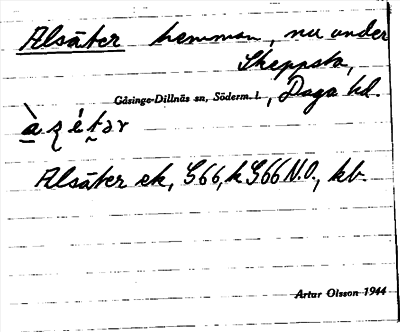 Alsäter hemman, nu under
Skeppsta,
Gåsinge-Dillnäs sn, Söderm. l., Daga hd.
Alsäter ek, G66, k G66 N.O., kb.
Artur Olsson 1944